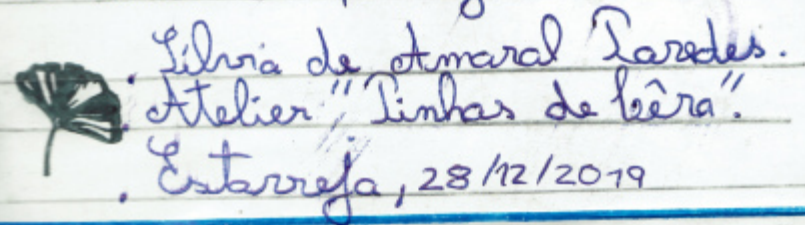 . Sílvia de Amaral Paredes.
. Atelier "Pinhas de Cêra".
. Estarreja, 28/12/2019